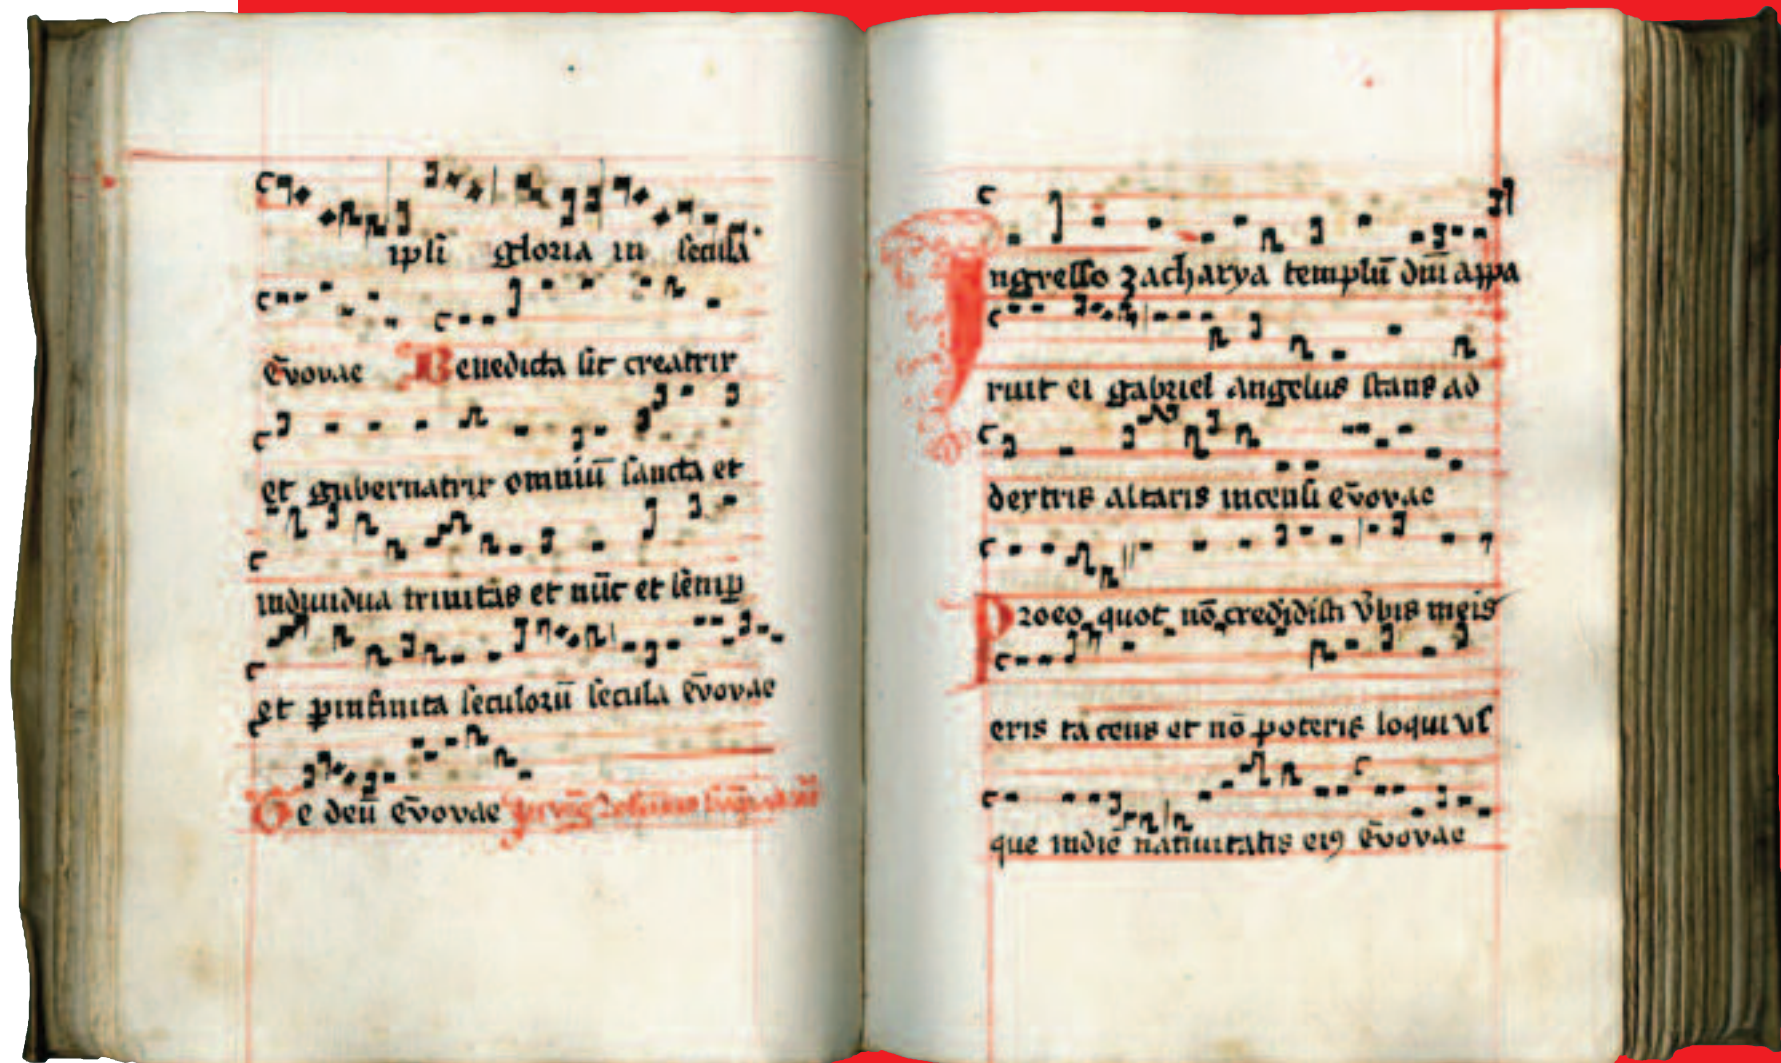 ipsi gloria in secula
ēvovae Benedicta sit creatrix
et gubernatrix omniū sancta et
indiuidua trinitas et nūc et semp
et pinfinita seculorū secula ēvovae
Te deū ēvovae
Ingresso zacharya templū dm̄ appa
ruit ei gabriel angelus stans ad
dextris altaris incensi ēvovae
Proeo quot nō credidisti vbis meis
eris tacens et nō poteris loqui vs
que indiē natiuitatis eiꝯ ēvovae